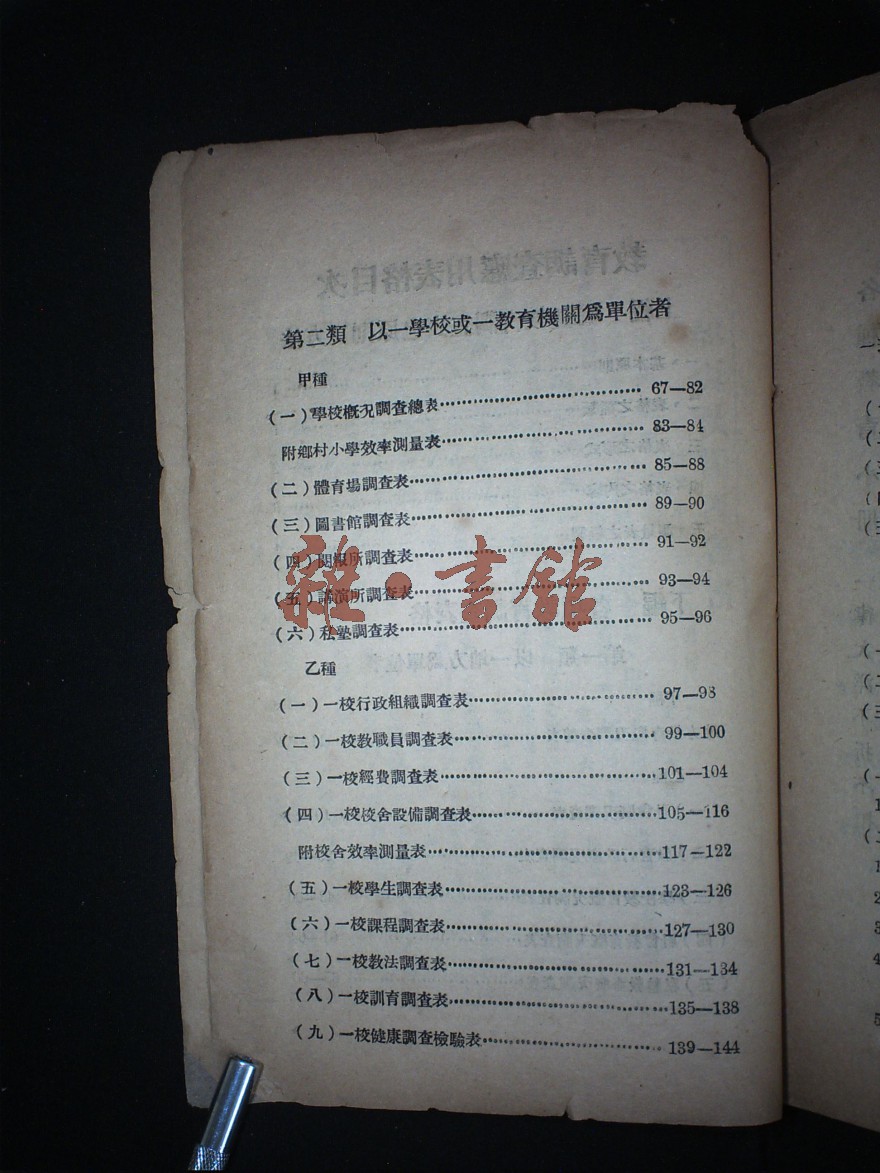 第二類 以一學校或一教育機關爲單位者
甲種
(一)學校概況調查總表 67—82
附鄉村小學效率測量表 83—84
(二)體育場調查表 85—88
(三)圖書館調查表 89—90
(四)閱報所調查表 91—92
(五)講演所調查表 93—94
(六)私塾調查表 95—96
雜·書館
乙種
(一)一校行政組織調查表 97—98
(二)一校教職員調查表 99—100
(三)一校經費調查表 101—104
(四)一校校舍設備調查表 105—116
附校舍效率測量表 117—122
(五)一校學生調查表 123—126
(六)一校課程調查表 127—130
(七)一校教法調查表 131—134
(八)一校訓育調查表 135—138
(九)一校健康調查檢驗表 139—144